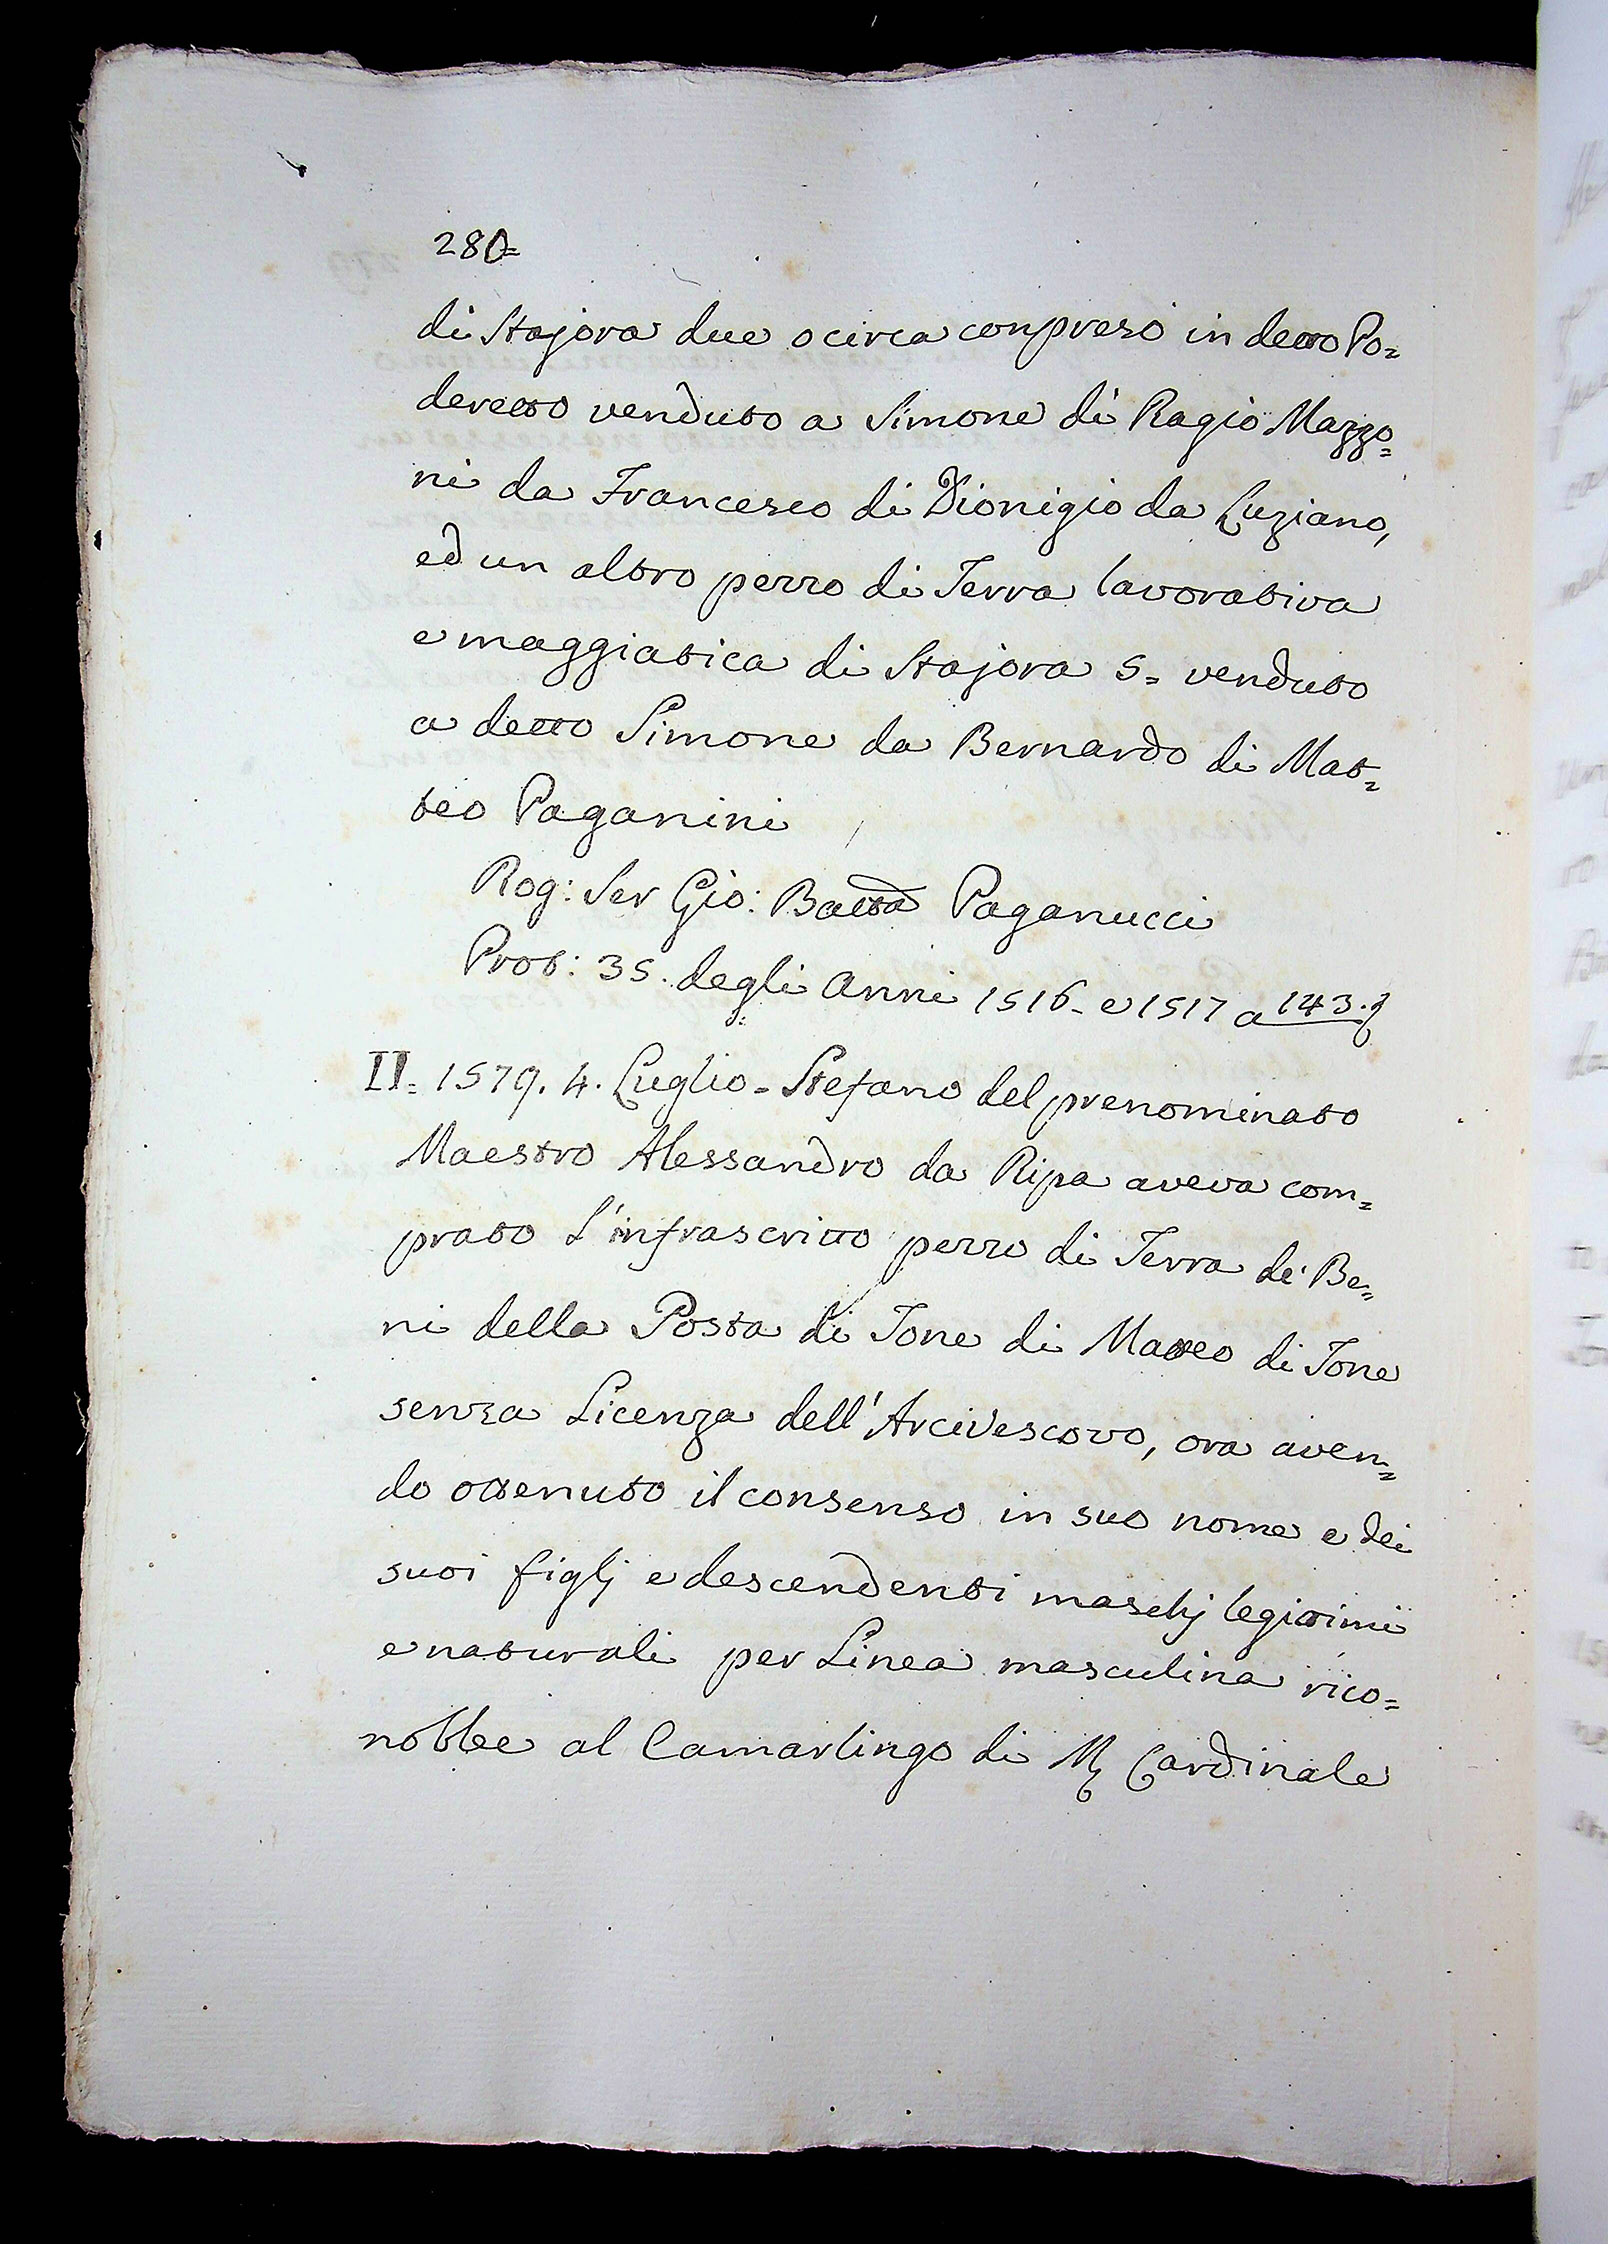 280=
di Stajora due o circa conpreso in detto Po=
deretto venduto a Simone di Ragio Mazzo=
ni da Francesco di Dionigio da Luziano,
ed un altro pezzo di Terra lavorativa
e maggiatica di Stajora 5= venduto
a detto Simone da Bernardo di Mat=
teo Paganini
Rog: Ser Gio: Batta Paganucci
Prot: 35. degli Anni 1516- e 1517 a 143.
II= 1579. 4. Luglio= Stefano del prenominato
Maestro Alessandro da Ripa aveva com=
prato l'infrascritto pezzo di Terra de' Be=
ni della Posta di Tone di Matteo di Tone
senza Licenza dell'Arcivescovo, ora aven=
do ottenuto il consenso in suo nome e dei
suoi figlj e descendenti maschj legittimi
e naturali per Linea masculina rico=
nobbe al Camarlingo di M Cardinale